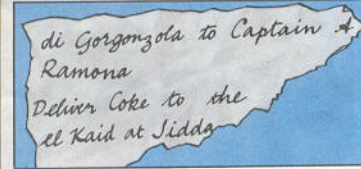 di Gorgonzola to Captain A
Ramona
Deliver Coke to the
el Kaid at Jidda